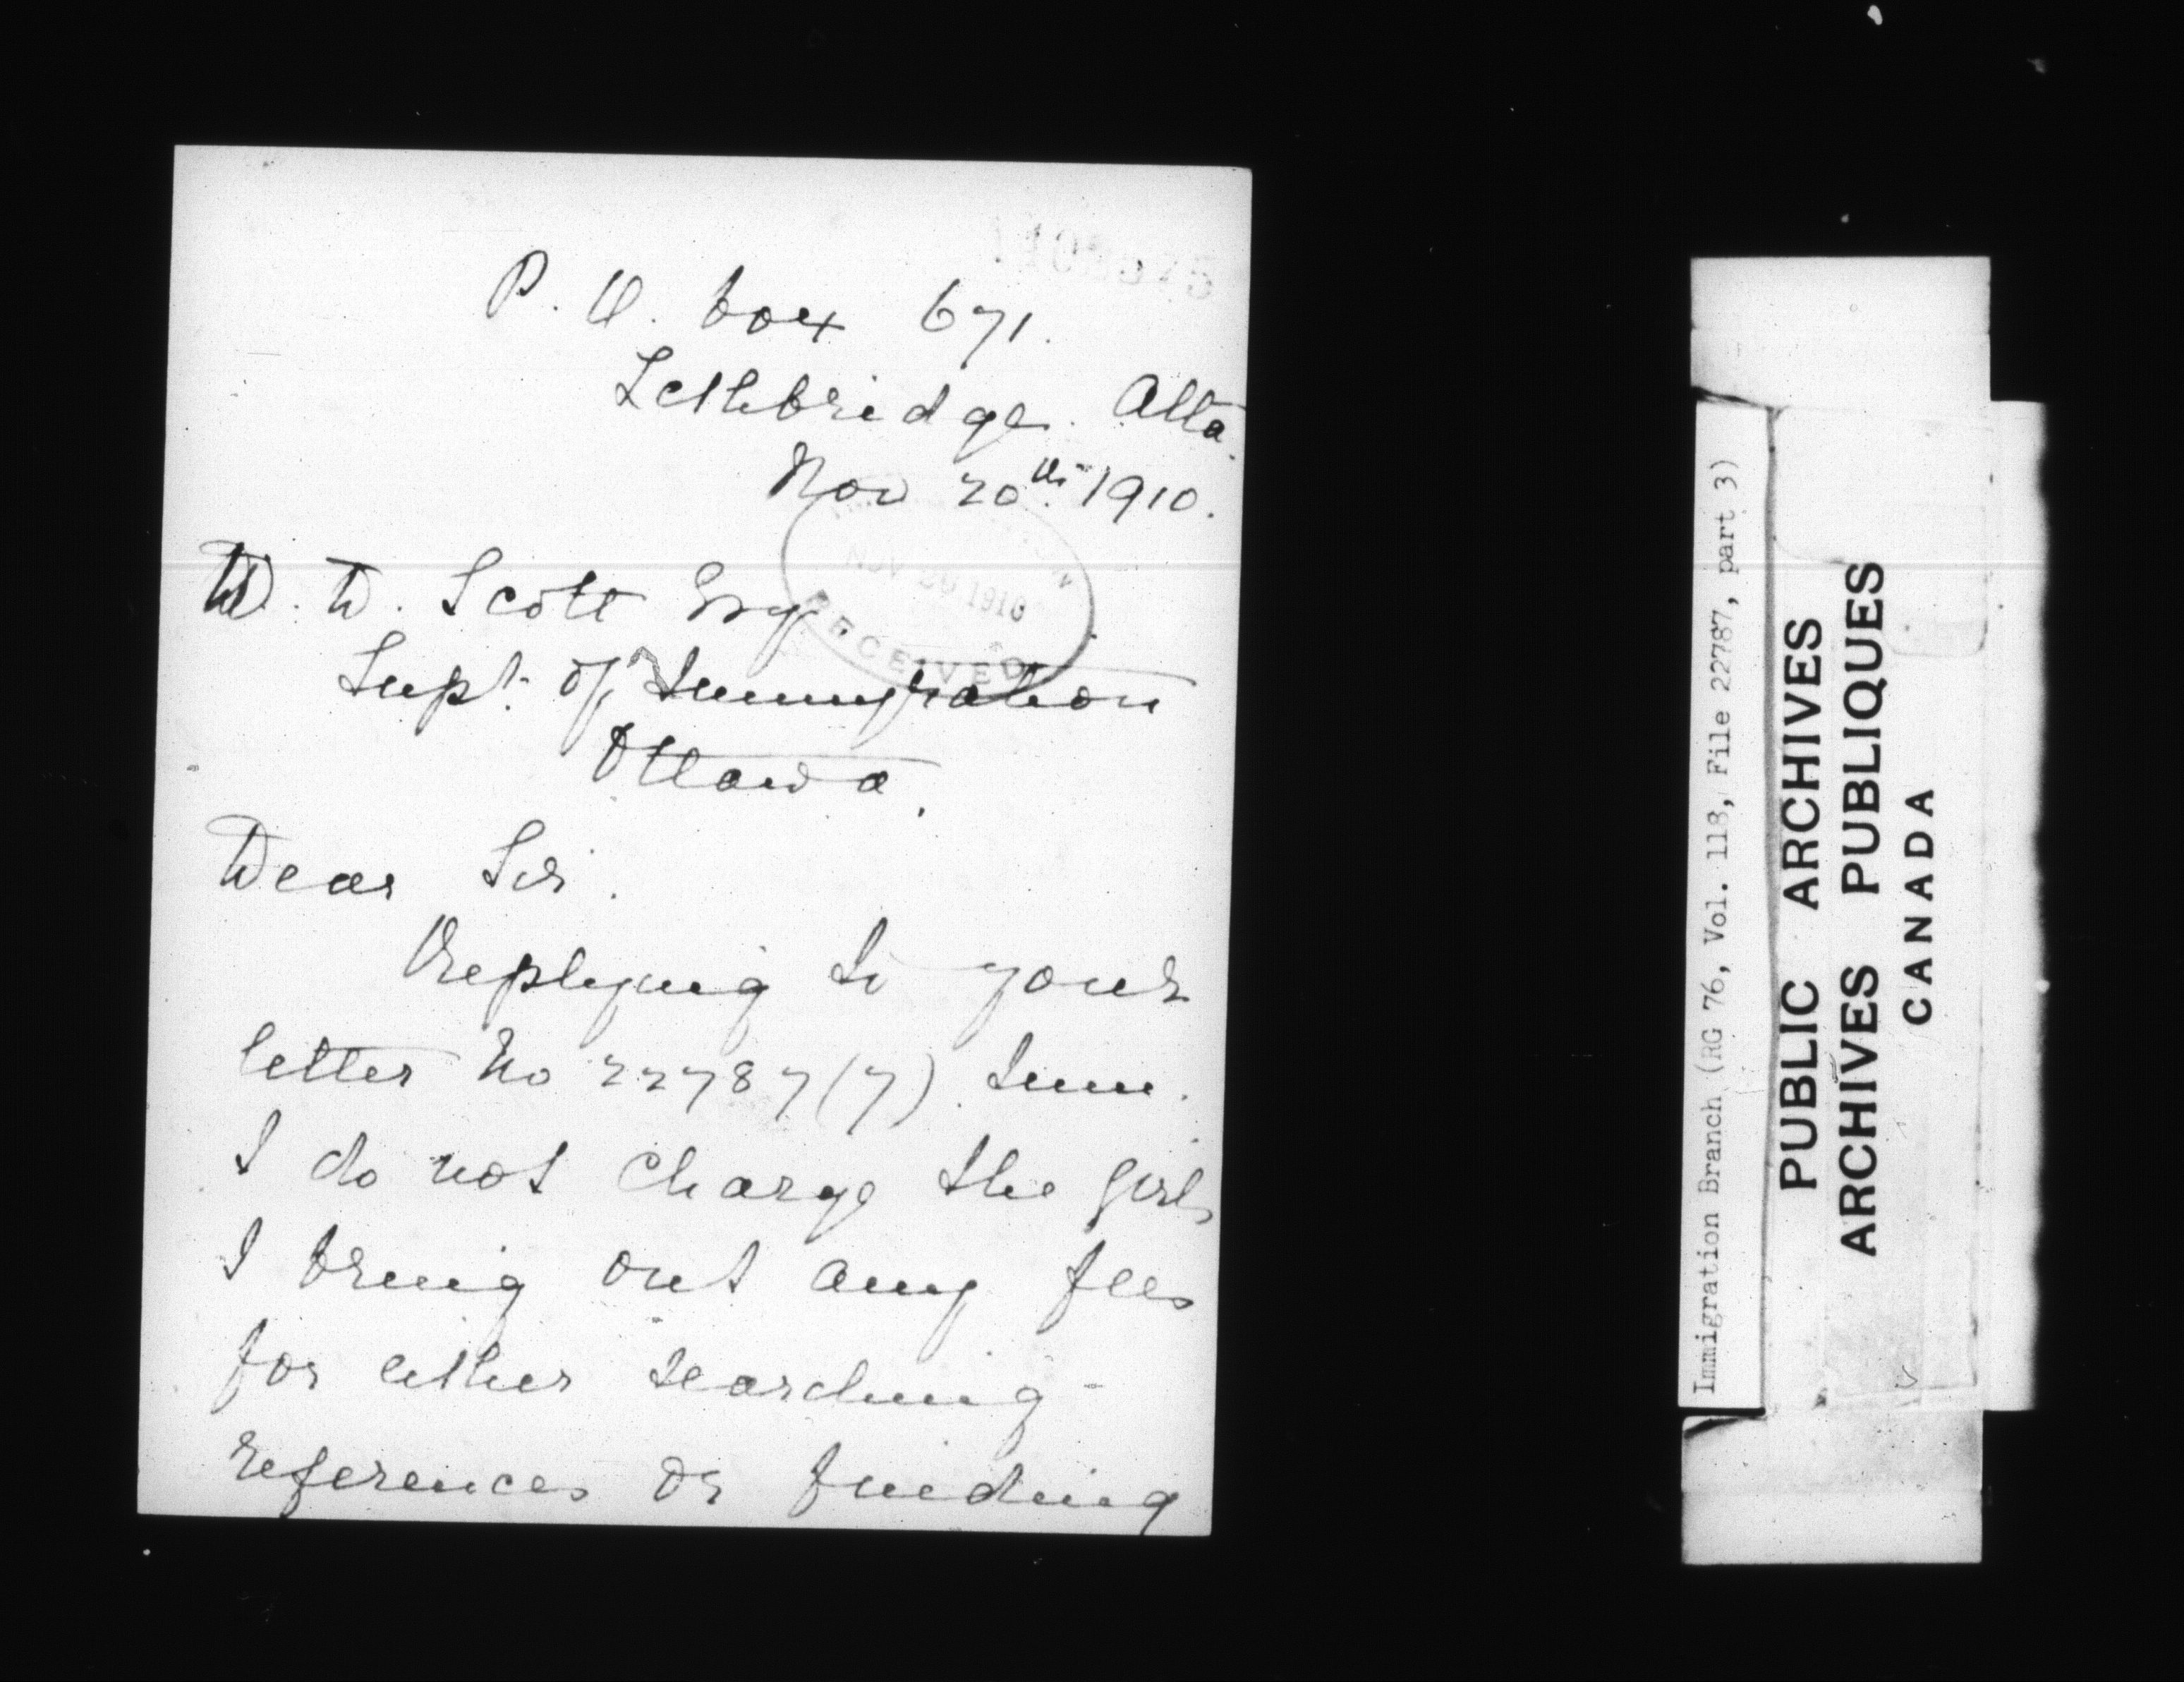 P. O. box 671.
Lethbridge. Alta.
Nov 20th 1910.
RECEIVED
NOV 26 1910
W. D. Scott Esq
Supt. of Immigration
Ottawa.
Dear Sir.
Replying to your
letter No 22787(7). Imm.
I do not charge the girls
I bring out any fees
for either searching -
references or finding
Immigration Branch (RG 76, Vol. 118, File 22787, part 3)
PUBLIC ARCHIVES
ARCHIVES PUBLIQUES
CANADA